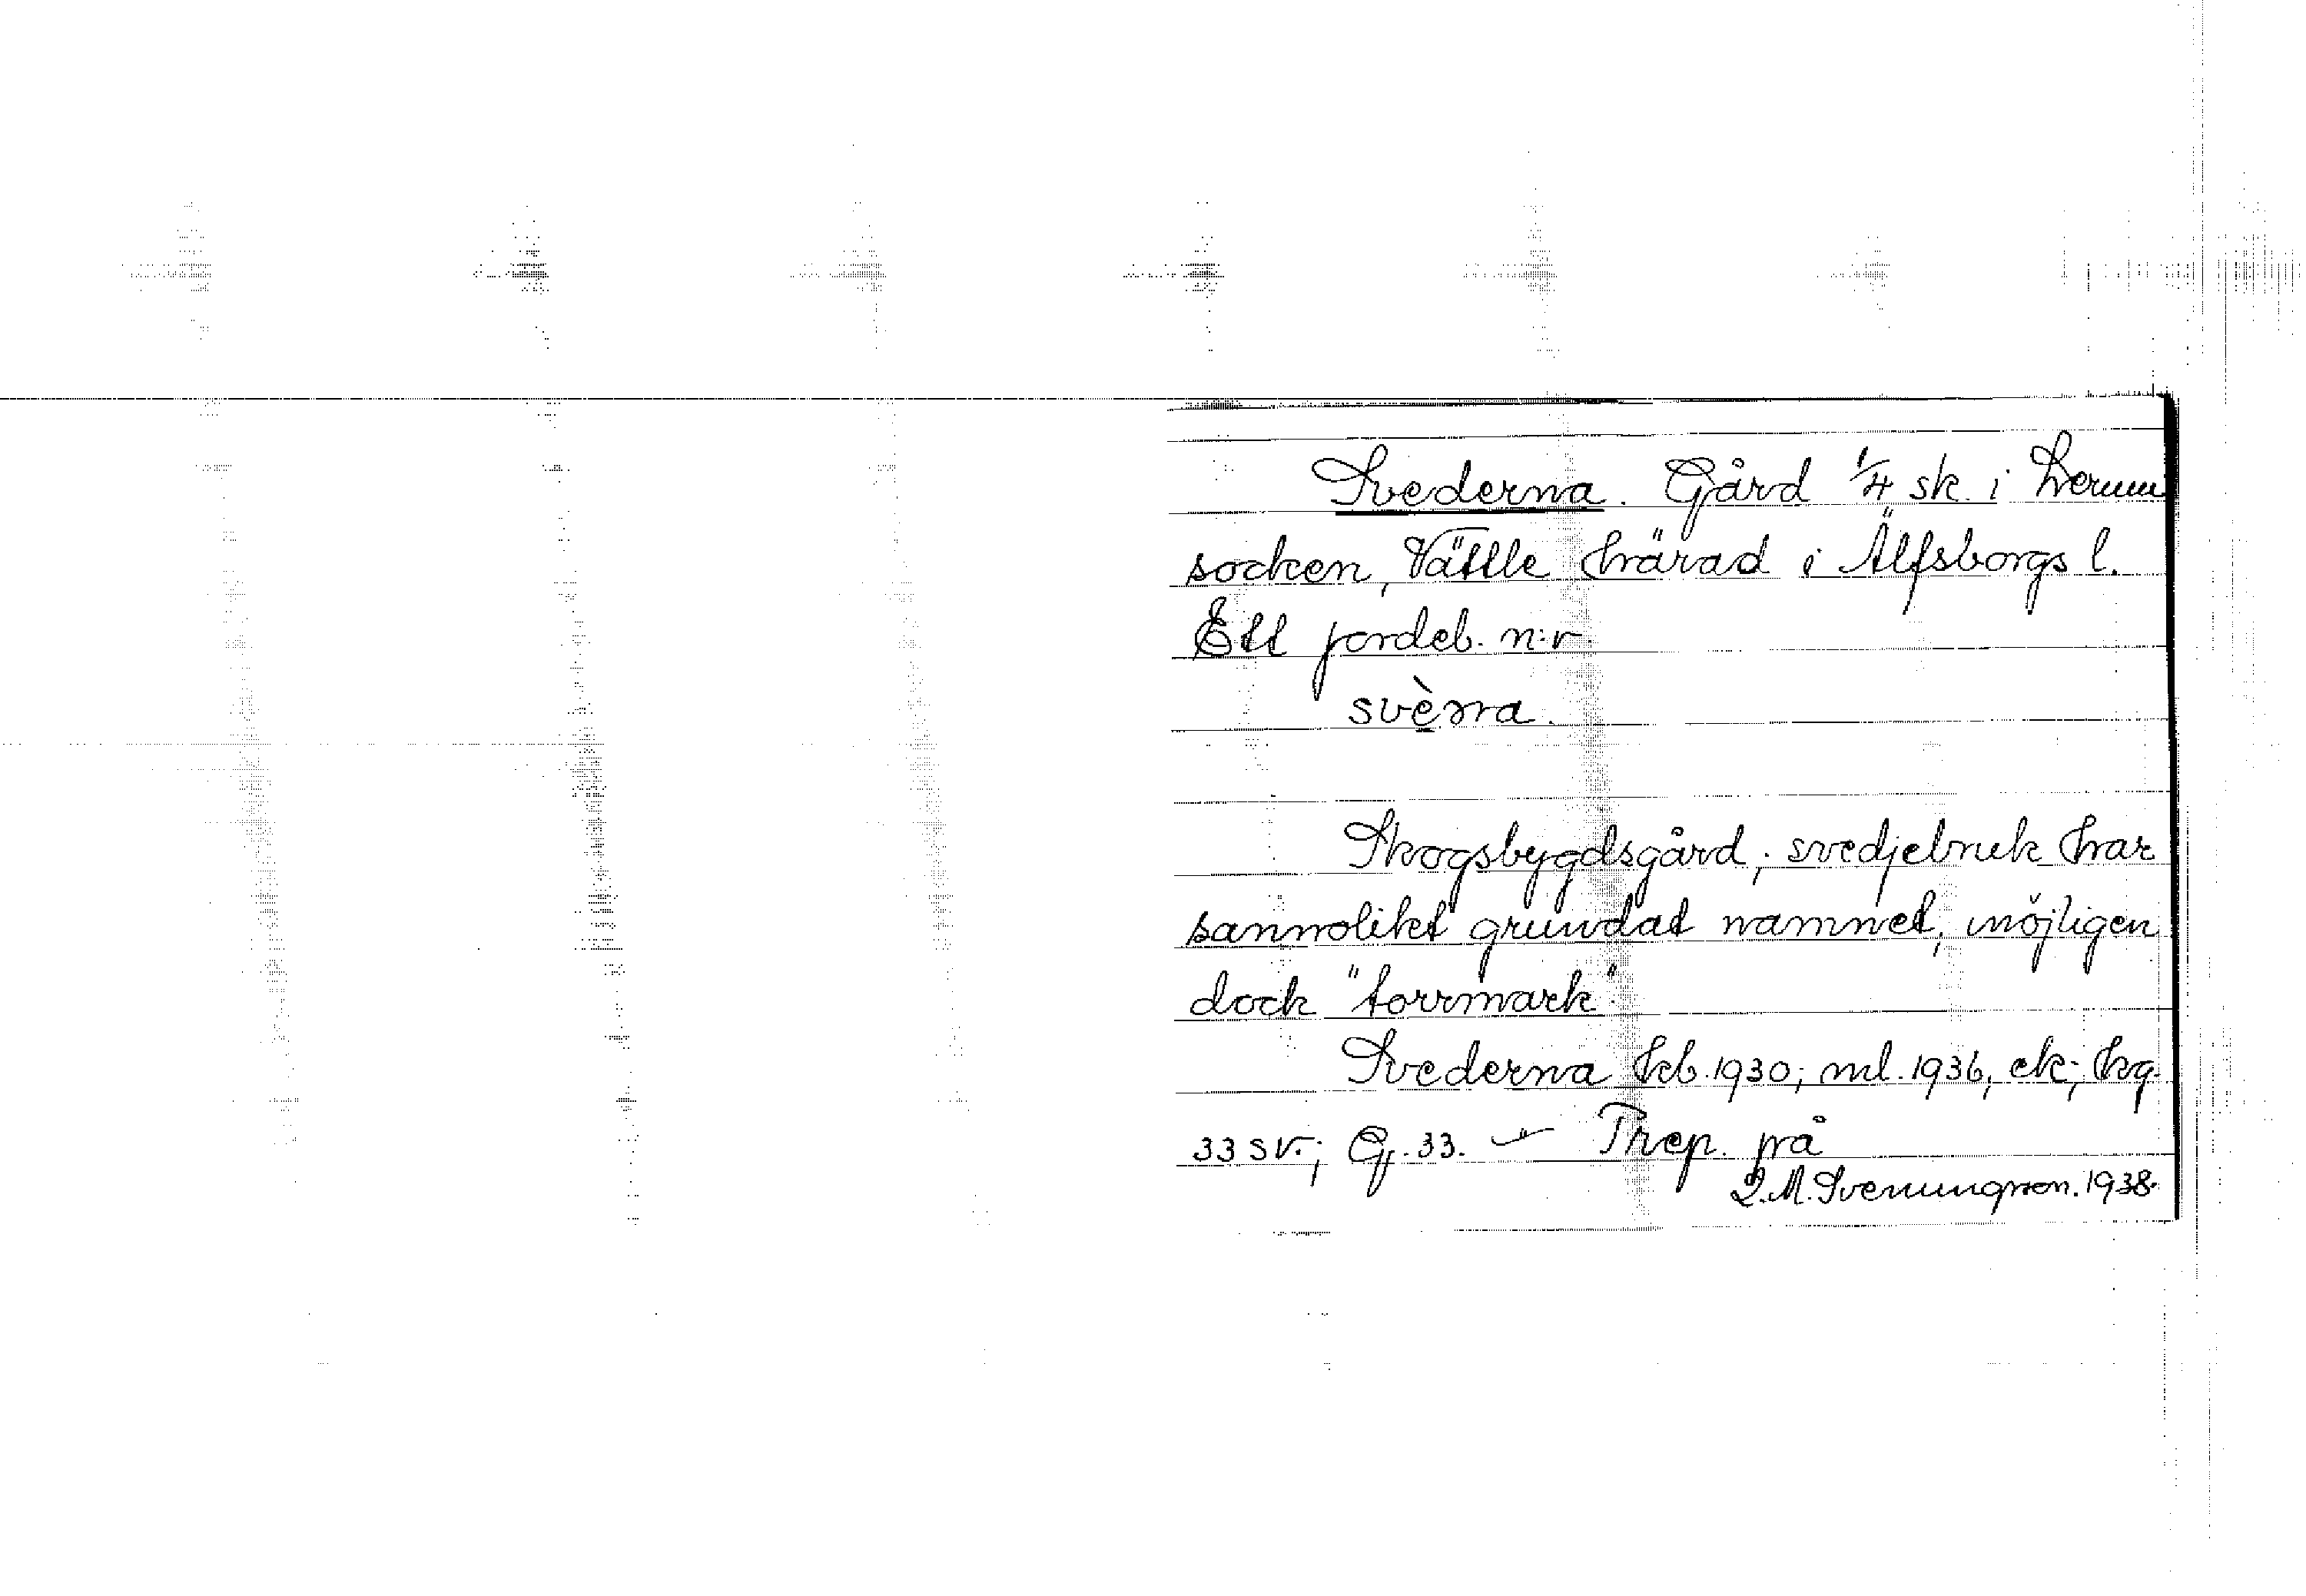 Svederna. Gård 1/4 sk. i Lerum
socken, Vättle härad i Älfsborgs l.
Ett jordeb. n:r.
svèrna.
Skogsbygdsgård; svedjebruk har
sannolikt grundat namnet, möjligen
dock "torrmark".
Svederna kb. 1930; ml. 1936, ek; hg.
33 sv.; Gj. 33. — Prep. på
L.M. Svenungsson. 1938.